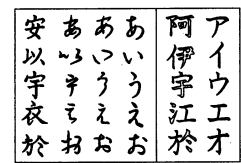 アイウエオ
阿伊宇江於
あいうえお
あいうえお
あいうえお
安以宇衣於